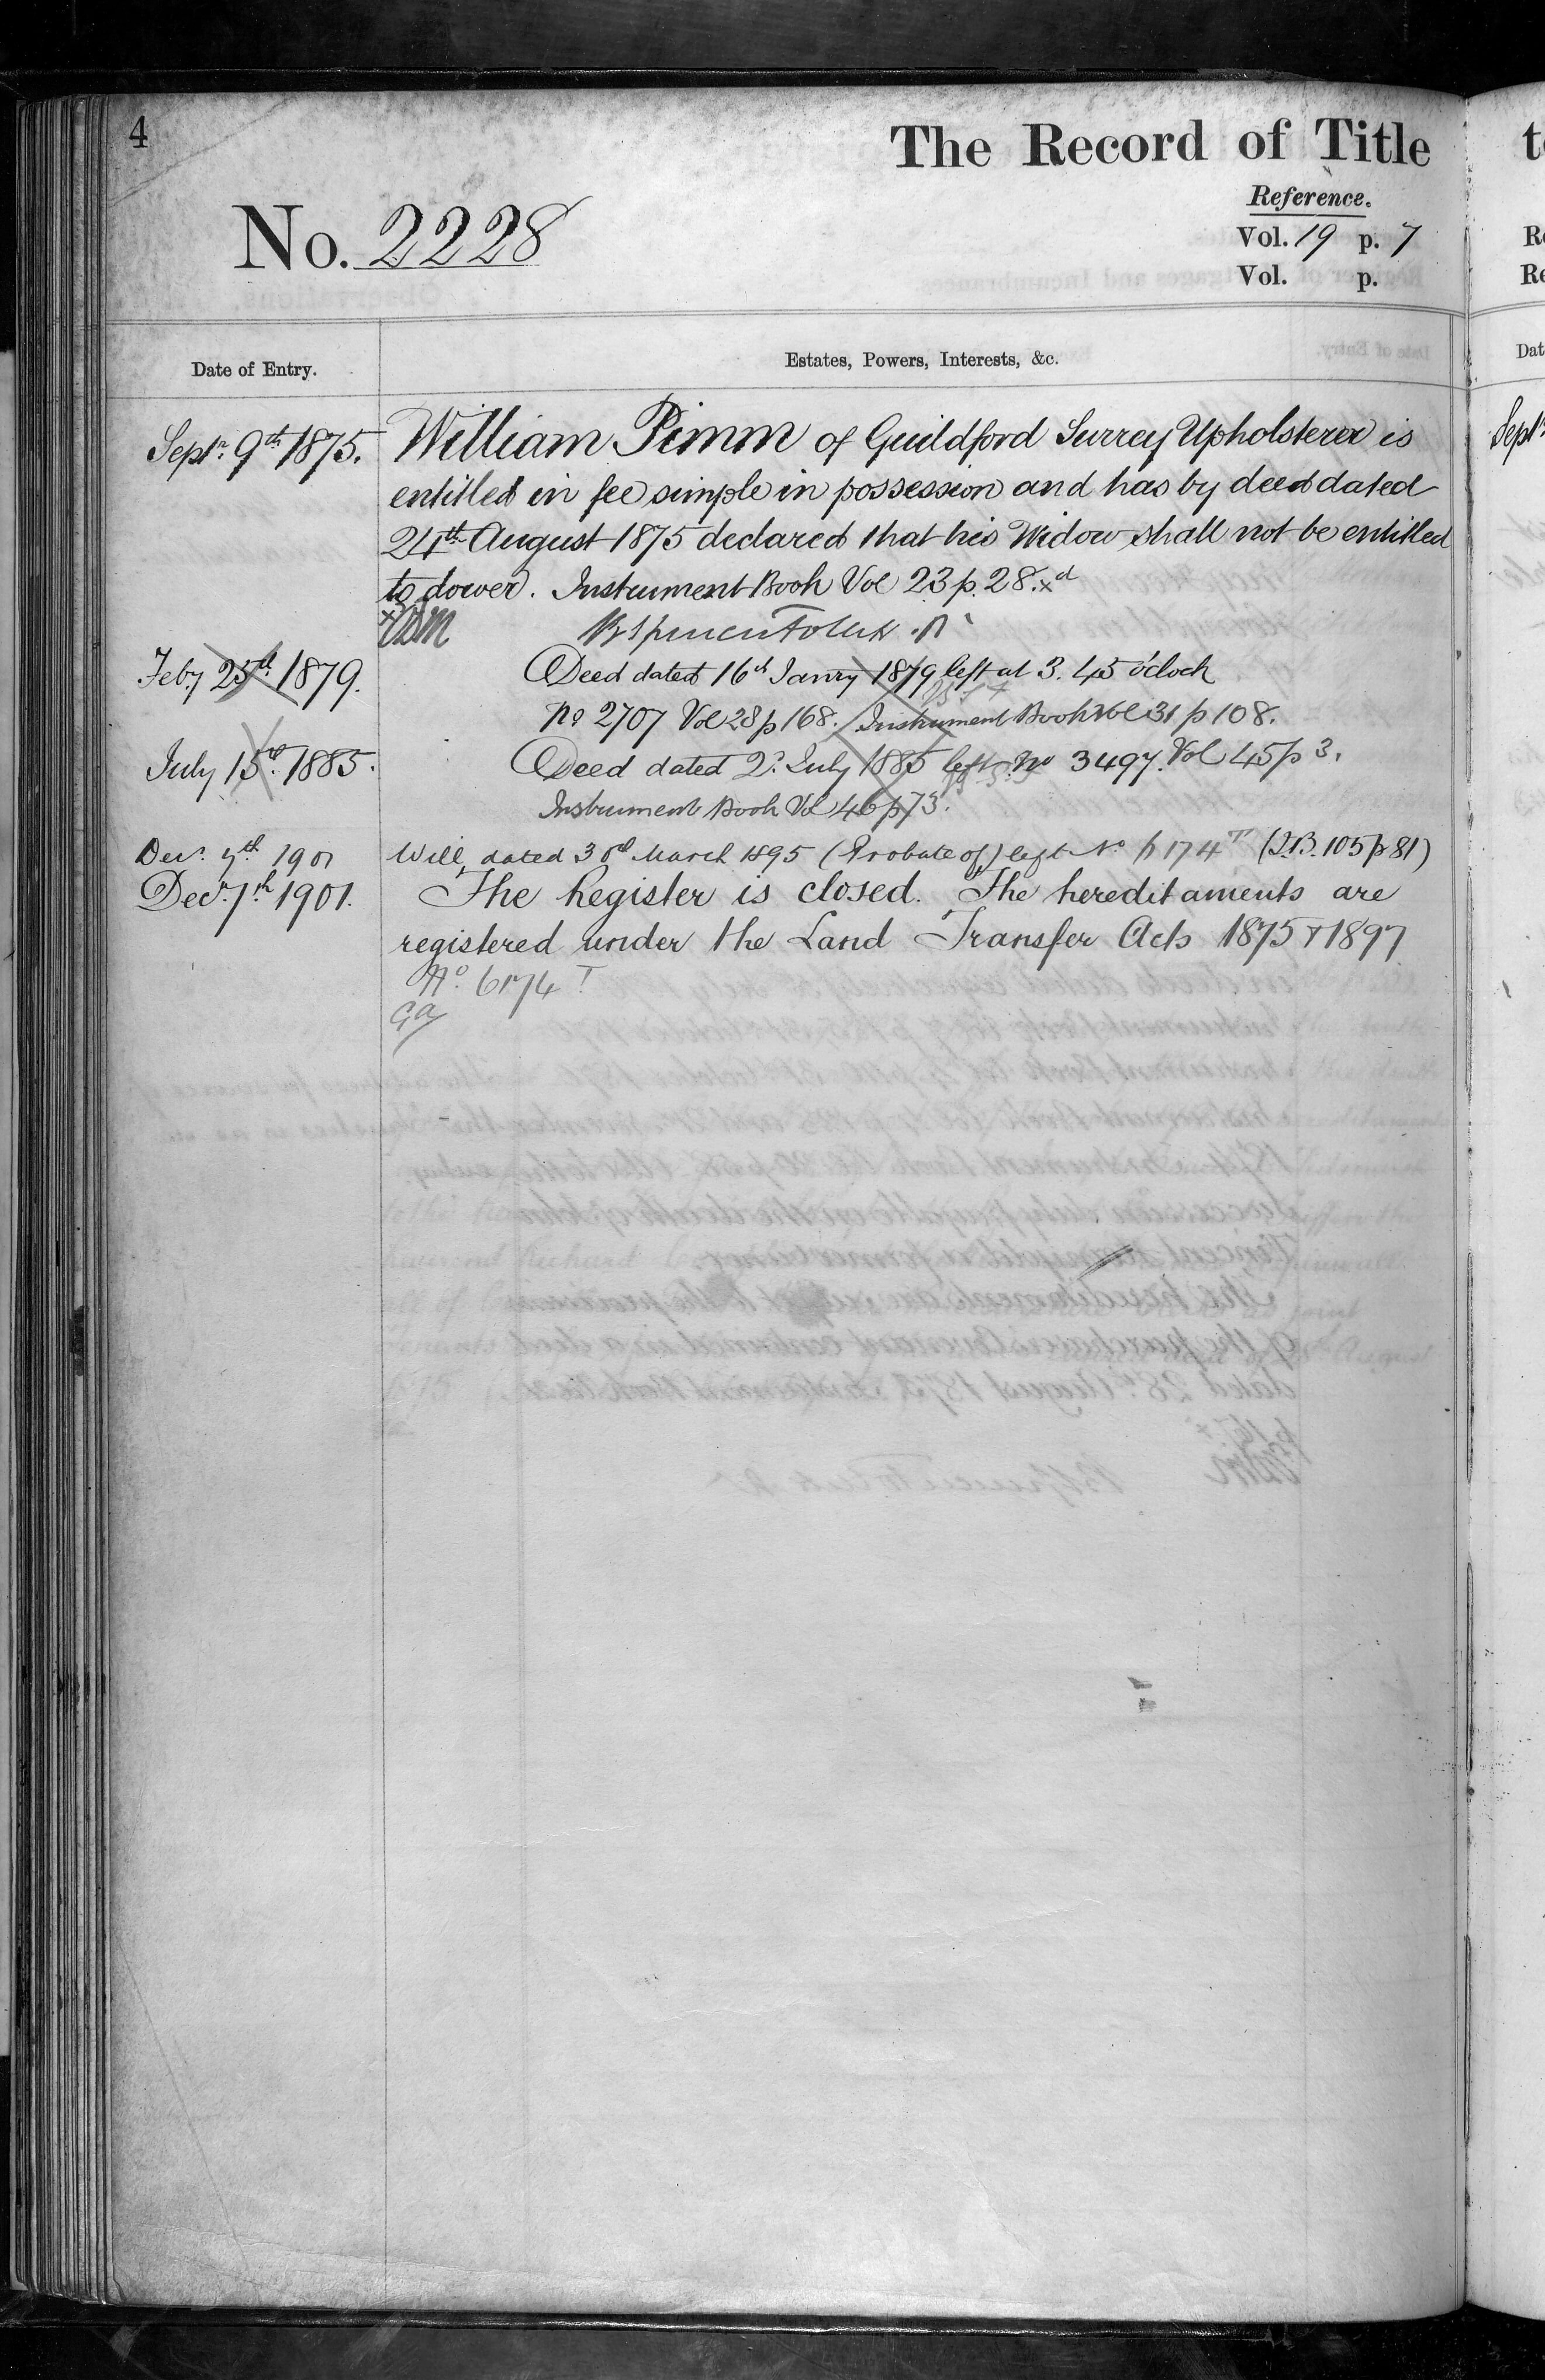 4
The Record of Title
Reference.
No. 2228
Vol. 19 p. 7
Vol. p.
Date of Entry.
Estates, Powers, Interests, &c.
Septr. 9th 1875. William Pimm of Guildford Surrey Upholsterer is
entitled in fee simple in possession and has by deed dated
24th August 1875 declared that his Widow shall not be entitled
to dower. Instrument Book Vol 23 p. 28. xd
Feby 25th 1879. Deed dated 16th Janry 1879 left at 3. 45 o'clock
No 2707 Vol 28 p 168. Instrument Book Vol 31 p 108.
July 15th 1885. Deed dated 2d. July 1885 left No 3497. Vol 45 p 3.
Instrument Book Vol 46 p 73.
Decr. 7th 1901 Will dated 30th March 1895 (Probate of) left No 6174 T (I.B. 105 p 81)
Decr. 7th 1901. The Register is closed. The hereditaments are
registered under the Land Transfer Acts 1875 & 1897
No. 6174 T